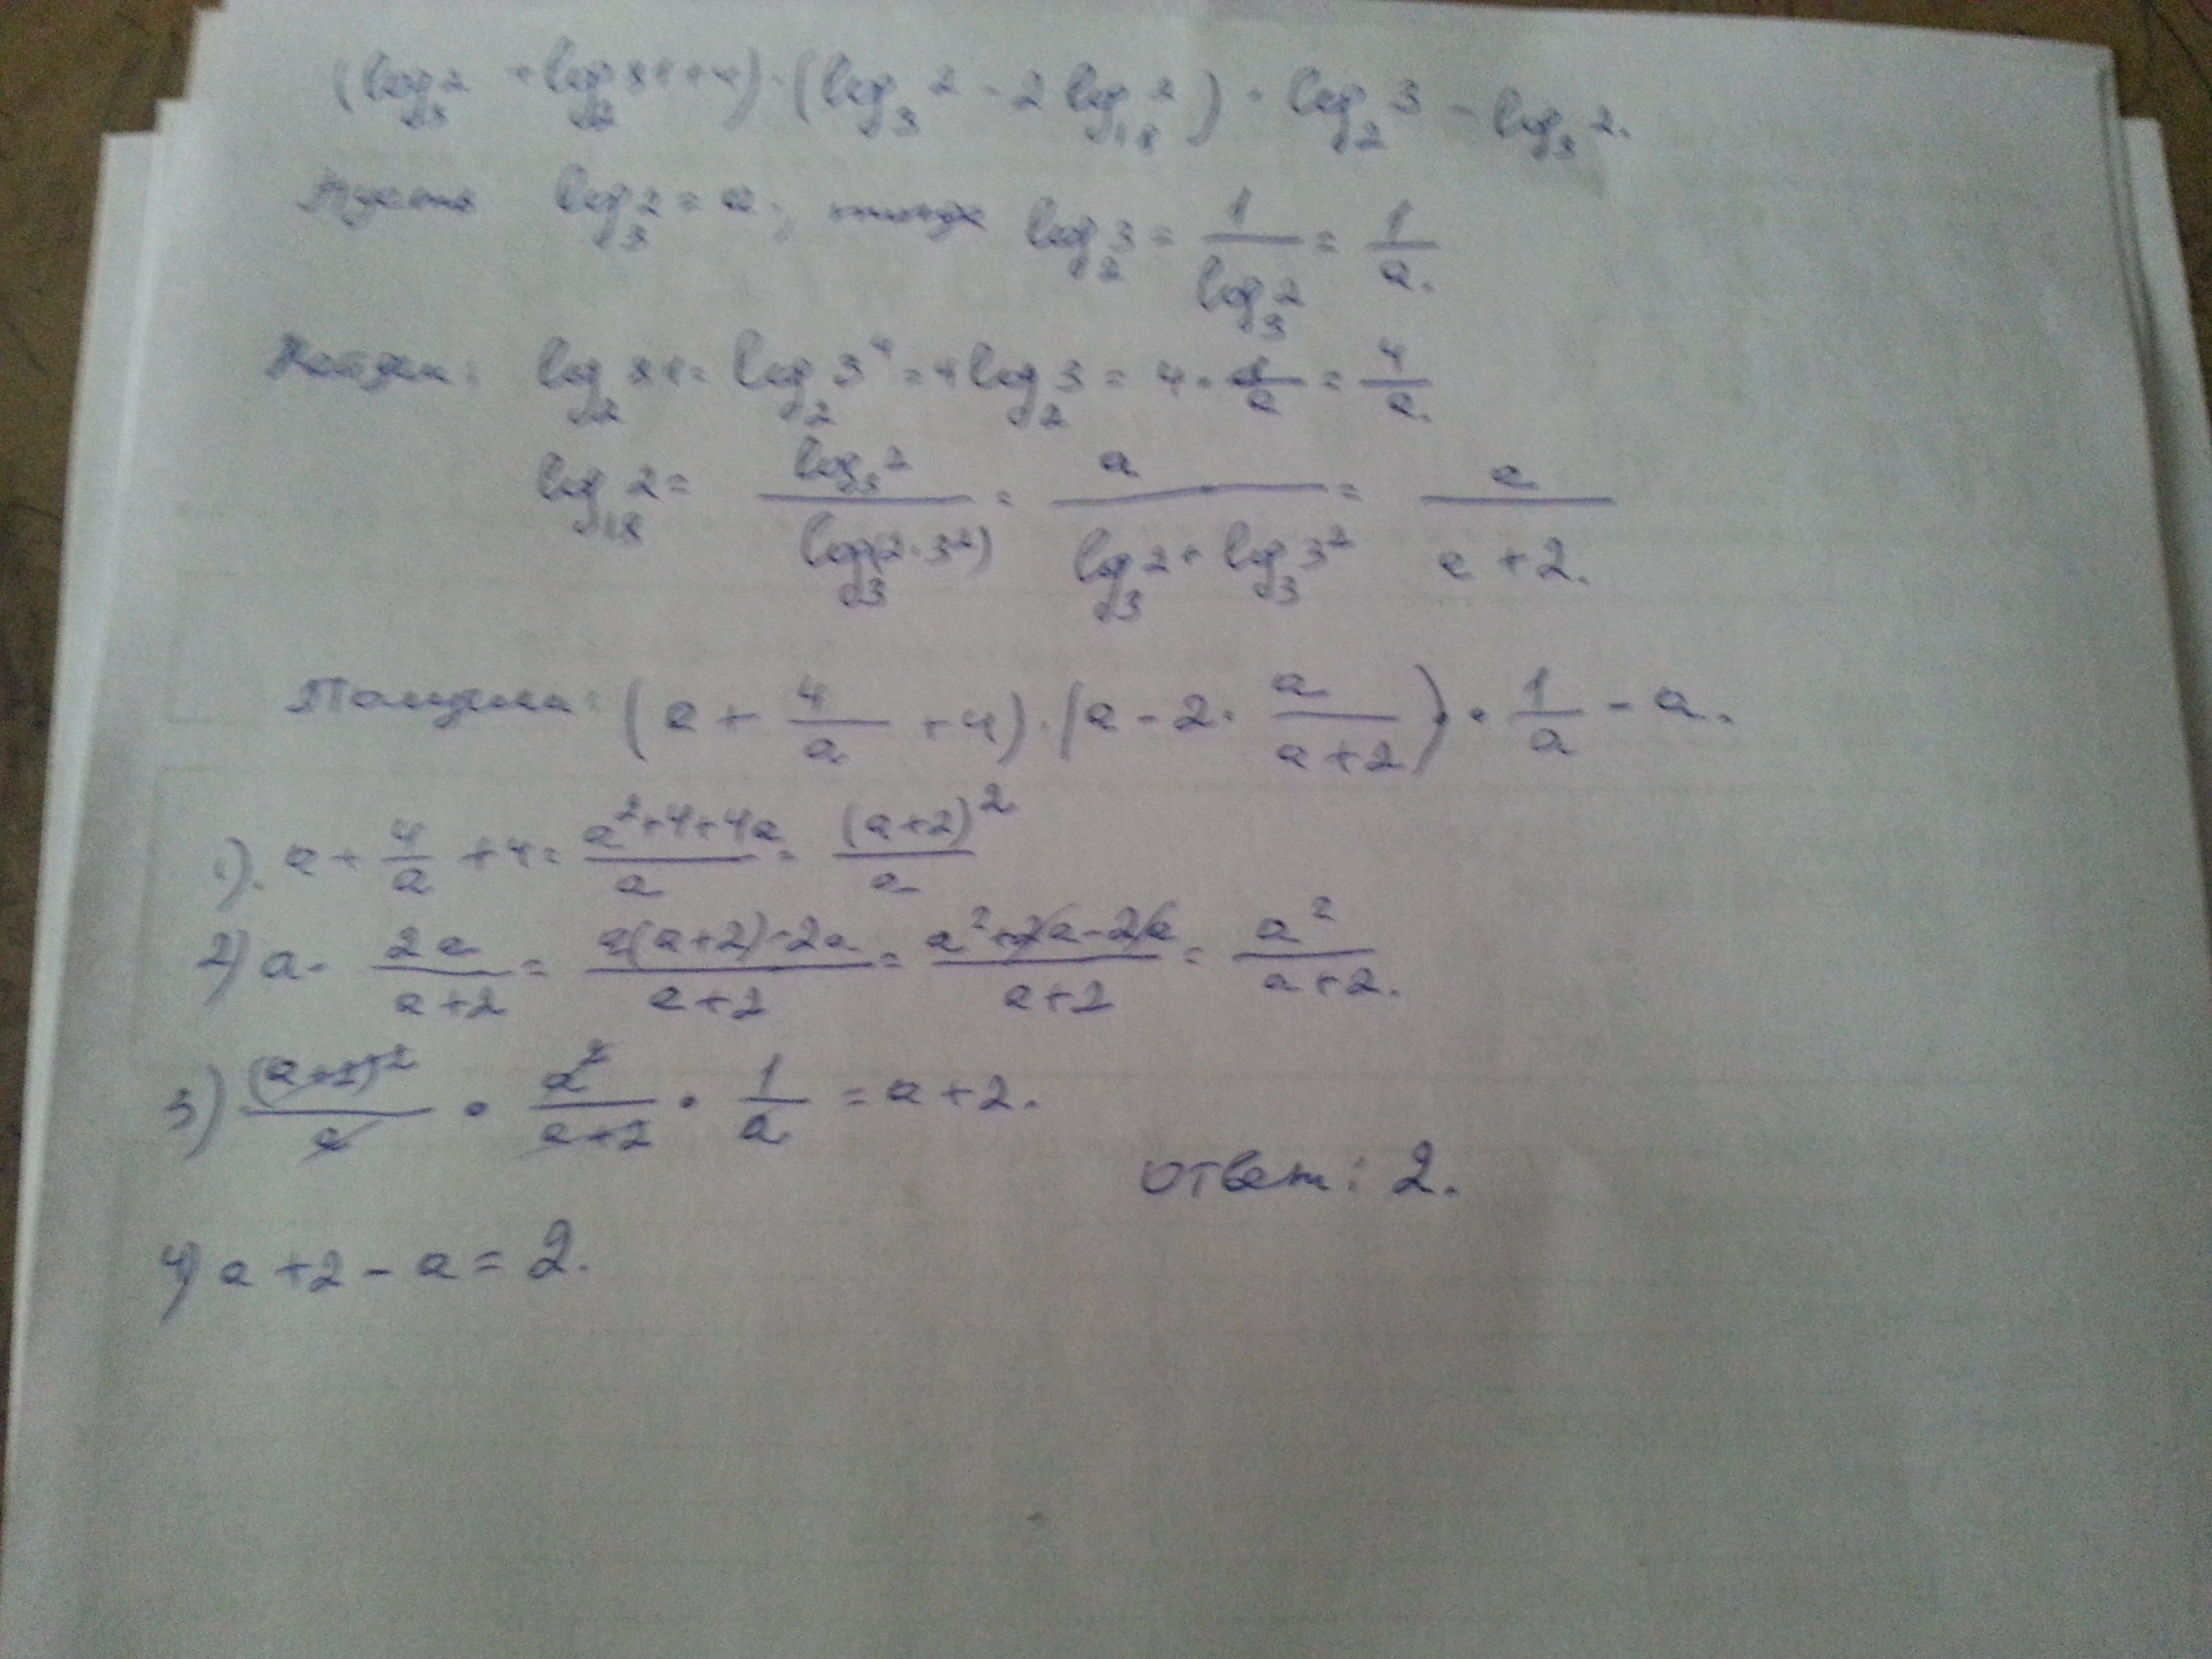 (log₃2 + log₂81 + 4) · (log₃2 - 2 log₁₈2) · log₂3 - log₃2.
Пусть log₃2 = a, тогда log₂3 = 1/log₃2 = 1/a.
Найдем: log₂81 = log₂3⁴ = 4 log₂3 = 4 · 1/a = 4/a.
log₁₈2 = log₃2/log₃(2·3²) = a/(log₃2 + log₃3²) = a/(a+2).
Получим: (a + 4/a + 4) · (a - 2 · a/(a+2)) · 1/a - a.
1). a + 4/a + 4 = (a²+4+4a)/a = (a+2)²/a
2) a - 2a/(a+2) = (a(a+2)-2a)/(a+2) = (a²+2a-2a)/(a+2) = a²/(a+2).
3) (a+2)²/a · a²/(a+2) · 1/a = a+2.
Ответ: 2.
4) a+2-a = 2.